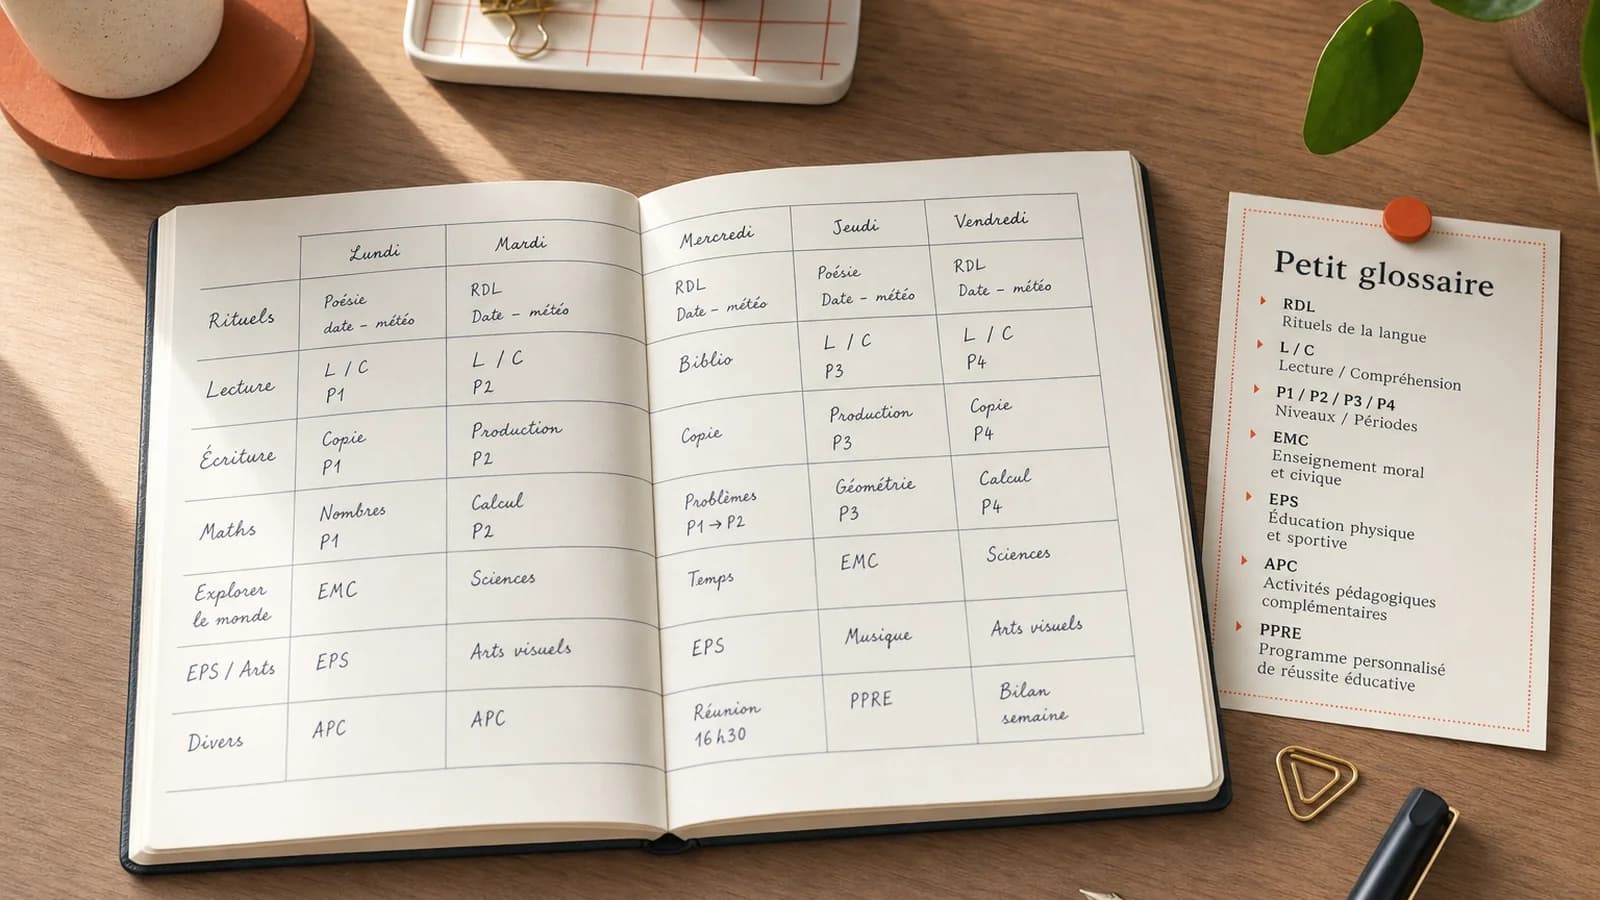 Lundi
Mardi
Mercredi
Jeudi
Vendredi
Rituels
Poésie
date – météo
RDL
Date – météo
RDL
Date – météo
Poésie
Date – météo
RDL
Date – météo
Lecture
L / C
P1
L / C
P2
Biblio
L / C
P3
L / C
P4
Écriture
Copie
P1
Production
P2
Copie
Production
P3
Copie
P4
Maths
Nombres
P1
Calcul
P2
Problèmes
P1 → P2
Géométrie
P3
Calcul
P4
Explorer
le monde
EMC
Sciences
Temps
EMC
Sciences
EPS / Arts
EPS
Arts visuels
EPS
Musique
Arts visuels
Divers
APC
APC
Réunion
16h30
PPRE
Bilan
semaine
Petit glossaire
RDL
Rituels de la langue
L / C
Lecture / Compréhension
P1 / P2 / P3 / P4
Niveaux / Périodes
EMC
Enseignement moral
et civique
EPS
Éducation physique
et sportive
APC
Activités pédagogiques
complémentaires
PPRE
Programme personnalisé
de réussite éducative